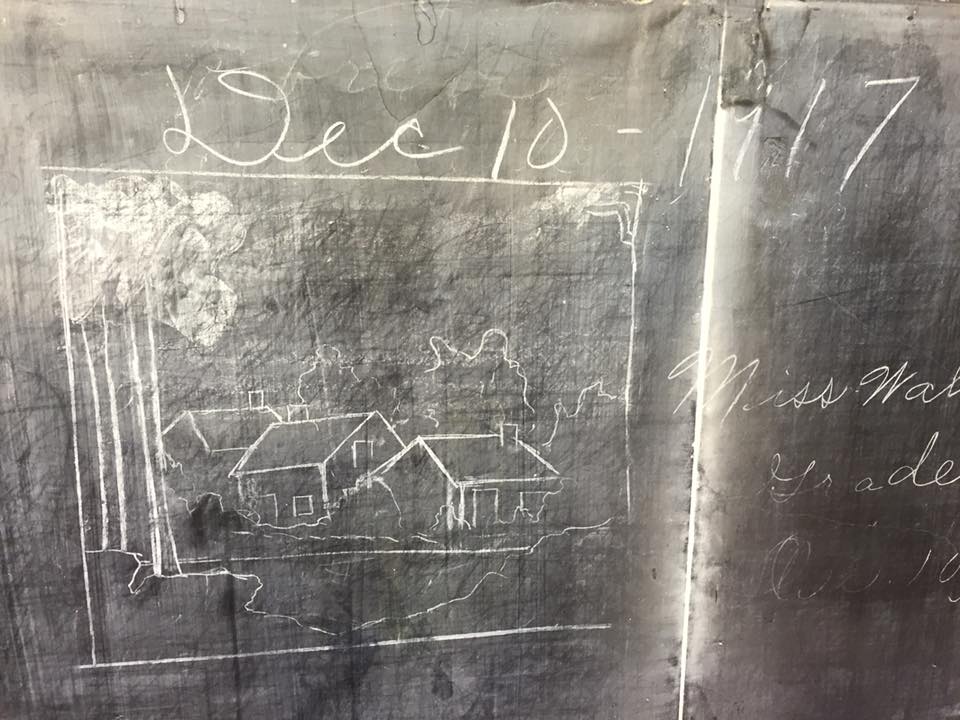 Dec 10 - 1917
Miss Wal
Grade